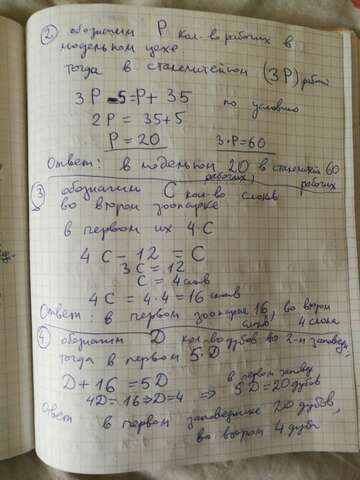 ② обозначим Р кол-во рабочих в
модельном цехе
тогда в сталелитейном (3Р) рабоч
3Р - 5 = Р + 35 по условию
2Р = 35+5
Р = 20 3·Р=60
Ответ: в модельном 20 рабочих, в сталелит 60 рабочих
③ обозначим С кол-во слонов
во втором зоопарке
в первом их 4С
4С - 12 = С
3С = 12
С = 4 слонов
4С = 4·4 = 16 слонов
Ответ: в первом зоопарке 16 слонов, во втором 4 слона
④ обозначим D кол-во дубов во 2-м заповед.
тогда в первом 5·D
D + 16 = 5D в первом заповед
4D = 16 ⇒ D = 4 ⇒ 5D = 20 дубов
Ответ в первом заповеднике 20 дубов,
во втором 4 дуба